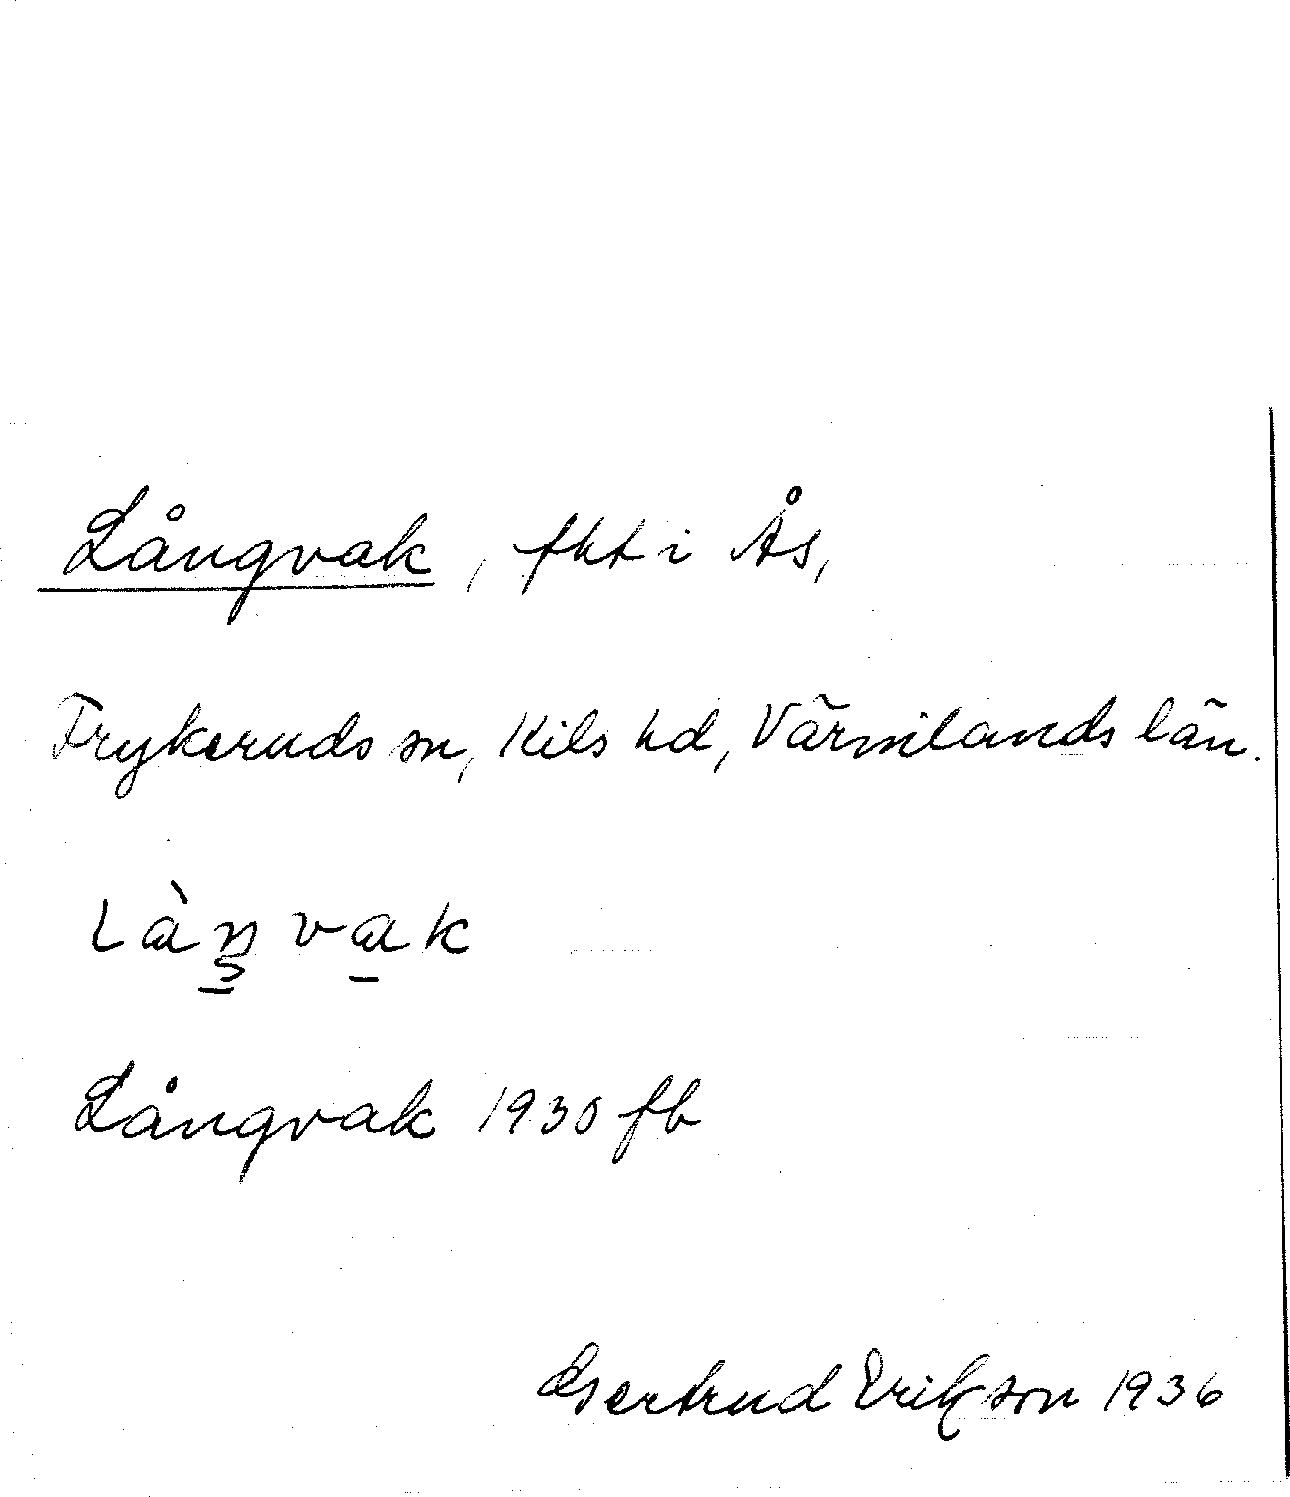 Långvak, fht i Ås,
Frykeruds sn, Kils hd, Värmlands län.
làŋ vak
Långvak 1930 fb
Gertrud Erikson 1936